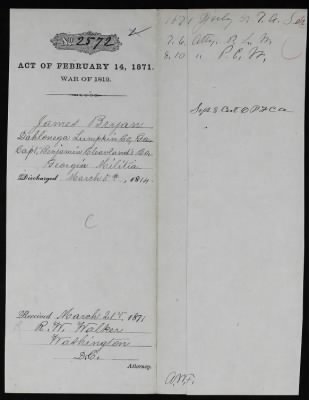 No. 2572
ACT OF FEBRUARY 14, 1871.
WAR OF 1812.
James Bryan
Dahlonega Lumpkin Co, Ga
Capt. Benjamin Cleavland's Co.
Georgia Militia
Discharged March 5th, 1814.
C
Received March 21st, 1871
R. W. Walker
Washington
D.C.
Attorney.
1871
7.6. Atty.
8.10 " P.C.
Sept 8